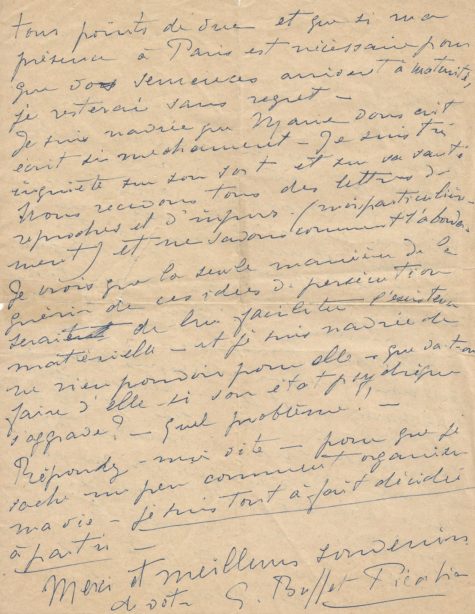 tous points de vue et que si ma
présence à Paris est nécessaire pour
que vos semences arrivent à maturité,
je resterai sans regret –
Je suis navrée que Marie vous ait
écrit si méchament – Je suis très
inquiète sur son sort et sur sa santé
Nous recevons tous des lettres de
reproches et d'injures (moi particulière-
ment) et ne savons comment l'aborder
Je crois que la seule manière de la
guérir de ces idées de persécution
serait de lui faciliter l'existence
matérielle – et je suis navrée de
ne rien pouvoir pour elle – que va-t-on
faire d'elle si son état psychique
s'aggrave? – Quel problème! –
Répondez-moi vite – pour que je
sache un peu comment organiser
ma vie – je suis tout à fait décidée
à partir –
Merci et meilleurs souvenirs
de votre G. Buffet Picabia